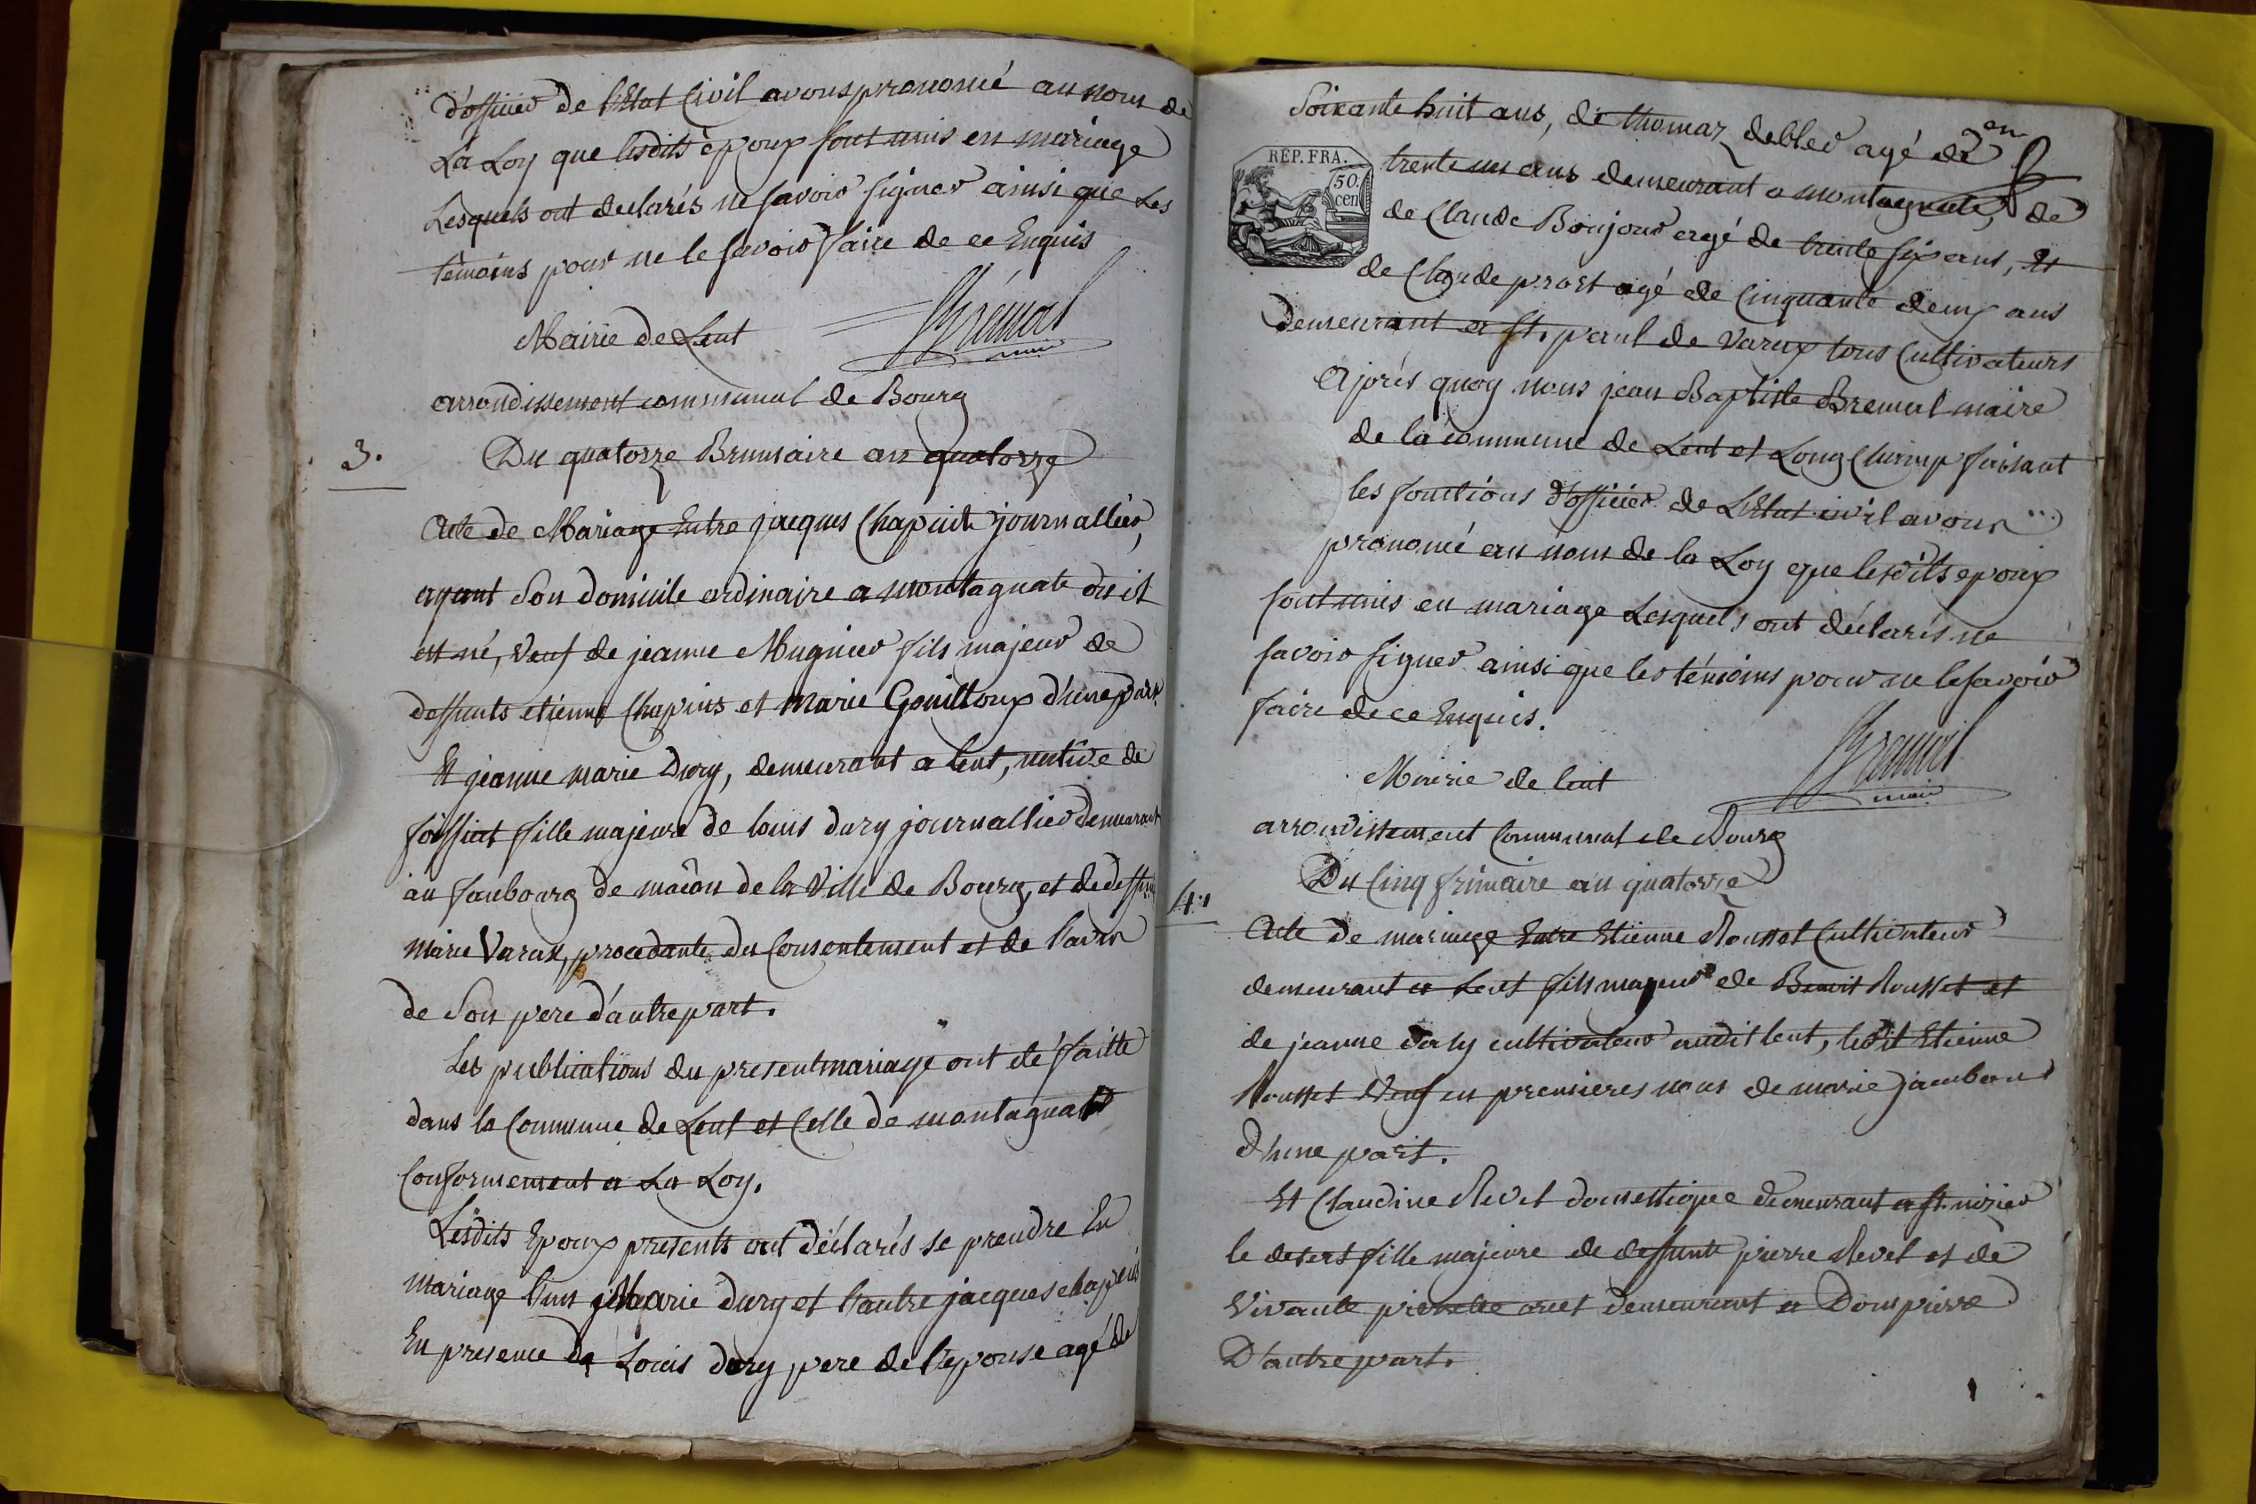 d'officier de l'Etat Civil avons prononcé au nom de
La Loy que lesdits époux sont unis en mariage
Lesquels ont declarés ne savoir signer ainsi que Les
témoins pour ne le savoir faire de ce Enquis
Brémal
maire
Mairie de Lent
arrondissement communal de Bourg
3.
Du quatorze Brumaire an quatorze
Acte de Mariage Entre jacques Chapuis journallier,
ayant Son domicile ordinaire a montagnate où il
est né, veuf de jeanne Mugnier fils majeur de
deffunts etienne Chapuis et Marie Gouilloux d'une part.
Et jeanne marie Dury, demeurant a lent, native de
foissiat fille majeure de louis dury journallier demeurant
au faubourg de maçon de la Ville de Bourg, et de deffunte
marie Varax, procedante du Consentement et de l'avis
de Son pere d'autre part.
Les publications du present mariage ont été faitte
dans la Commune de Lent et Celle de montagnate
Conformement a La Loy.
Lesdits Epoux presents ont déclarés se prendre En
mariage l'une jne Marie dury et l'autre jacques chapuis
En presence de Louis dury pere de l'epouse agé de
Soixante huit ans, de thomaz debler agé de
REP. FRA.
50.
cen
trente un ans demeurant a montagnate, de
de Claude Bonjour agé de trente six ans, Et
de Claude prost agé de Cinquante deux ans
demeurant a St. paul de Varax tous Cultivateurs
Après quoy nous jean Baptiste Bremal maire
de la commune de Lent et Long Champ faisant
les fonctions d'officier de L'Etat civil avons
prononcé au nom de la Loy que lesdits epoux
sont unis en mariage Lesquels ont déclarés ne
savoir signer ainsi que les témoins pour ne le savoir
faire de ce Enquis.
Bremal
maire
Mairie de lent
arrondissement Communal de Bourg
Du Cinq frimaire an quatorze
4.
Acte de mariage Entre Etienne Rousset Cultivateur
demeurant a Lent fils majeur de Benoit Rousset et
de jeanne daly cultivateur audit lent, ledit Etienne
Rousset Veuf en premieres noces de marie jambon
d'une part.
Et Claudine Revel domestique demeurant a St. nizier
le desert fille majeure de deffunt pierre Revel et de
Vivante pierrette demeurant a Dompierre
D'autre part.